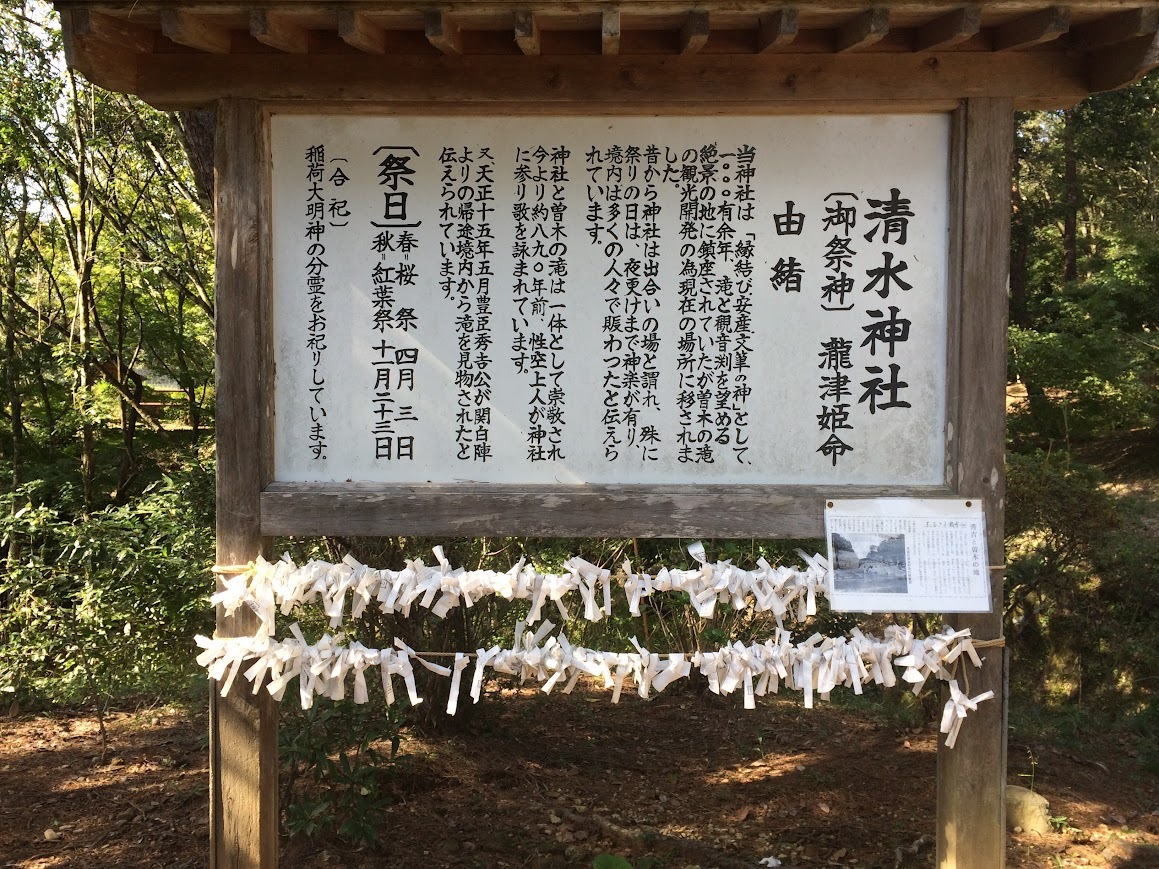 清水神社
〔御祭神〕 瀧津姫命
由緒
当神社は「縁結び安産文筆の神」として、
一〇〇有余年、滝と観音渕を望める
絶景の地に鎮座されていたが曽木の滝
の観光開発の為現在の場所に移されま
した。
昔から神社は出合いの場と謂れ、殊に
祭りの日は、夜更けまで神楽が有り、
境内は多くの人々で賑わつたと伝えら
れています。
神社と曽木の滝は一体として崇敬され
今より約八九〇年前、性空上人が神社
に参り歌を詠まれています。
又天正十五年五月豊臣秀吉公が関白陣
よりの帰途境内から滝を見物されたと
伝えられています。
〔祭日〕春=桜祭 四月三日
秋=紅葉祭 十一月二十三日
〔合祀〕
稲荷大明神の分霊をお祀りしています。
秀吉と曽木の滝